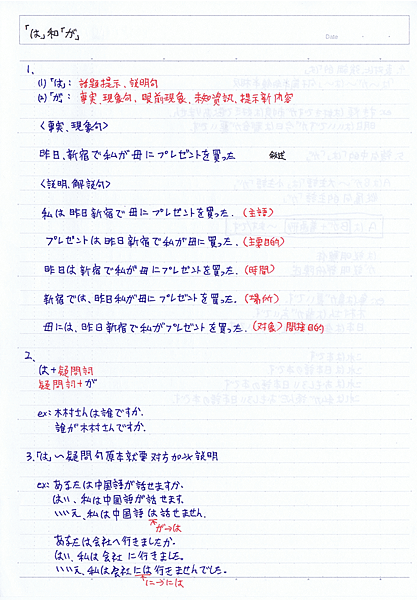 「は」和「が」
Date
1.
(1)「は」: 話題提示、説明句
(2)「が」: 事実、現象句、眼前現象、未知資訊、提示新內容
<事実、現象句>
昨日、新宿で私が母にプレゼントを買った
<説明、解説句>
私は昨日新宿で母にプレゼントを買った.(主語)
プレゼントは昨日新宿で私が母に買った.(主要目的)
昨日は新宿で私が母にプレゼントを買った.(時間)
新宿では、昨日私が母にプレゼントを買った.(場所)
母には、昨日新宿で私がプレゼントを買った.(対象)間接目的
2.
は+疑問詞
疑問詞+が
ex: 木村さんは誰ですか.
誰が木村さんですか.
3.「は」へ疑問句原本就要対方加以説明
ex: あなたは中国語が話せますか.
はい、私は中国語が話せます.
いいえ、私は中国語は話せません.
が→は
あなたは会社へ行きましたか.
はい、私は会社に行きました.
いいえ、私は会社には行きませんでした.
に→には